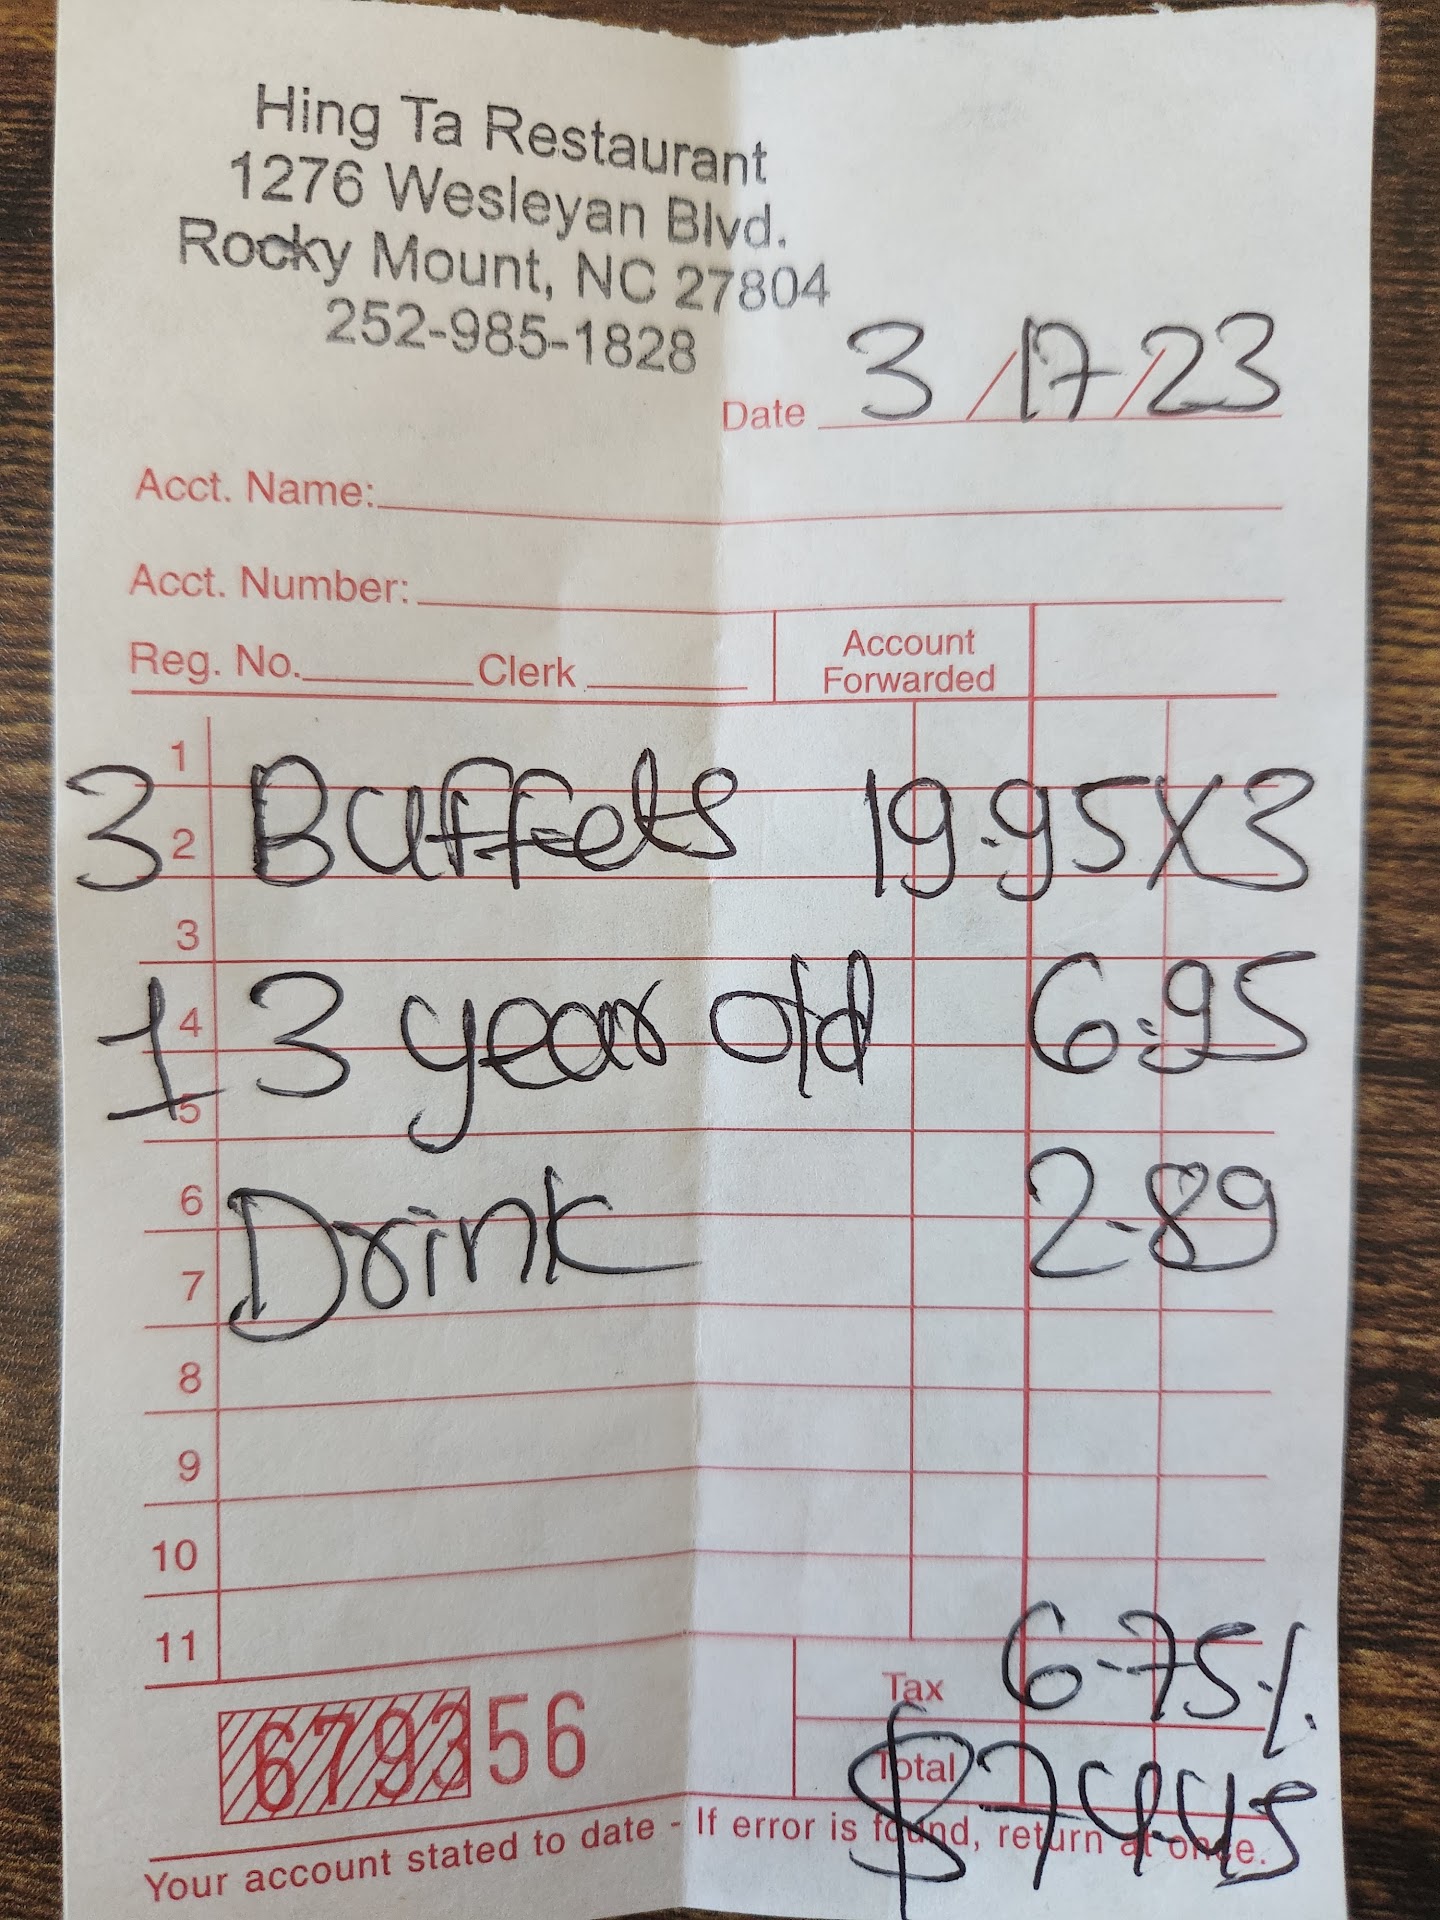 Hing Ta Restaurant
1276 Wesleyan Blvd.
Rocky Mount, NC 27804
252-985-1828
Date 3/17/23
Acct. Name:
Acct. Number:
Reg. No. Clerk
Account Forwarded
1
3 2 Buffets 19.95x3
3
1 4 3 year old 6.95
5
6 Drink 2.89
7
8
9
10
11
Tax 6.75%
679356
Total $74.45
Your account stated to date - If error is found, return at once.